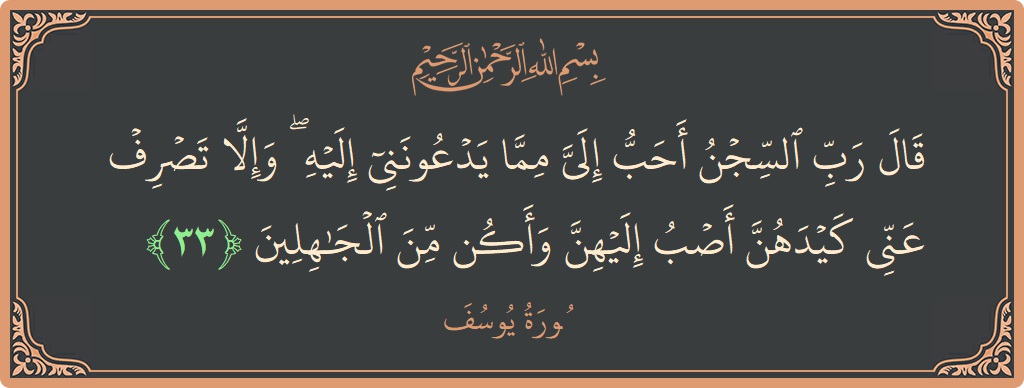 بِسْمِ اللَّهِ الرَّحْمَٰنِ الرَّحِيمِ
قَالَ رَبِّ ٱلسِّجْنُ أَحَبُّ إِلَىَّ مِمَّا يَدْعُونَنِىٓ إِلَيْهِ ۖ وَإِلَّا تَصْرِفْ
عَنِّى كَيْدَهُنَّ أَصْبُ إِلَيْهِنَّ وَأَكُن مِّنَ ٱلْجَـٰهِلِينَ ﴿٣٣﴾
سُورَةُ يُوسُفَ